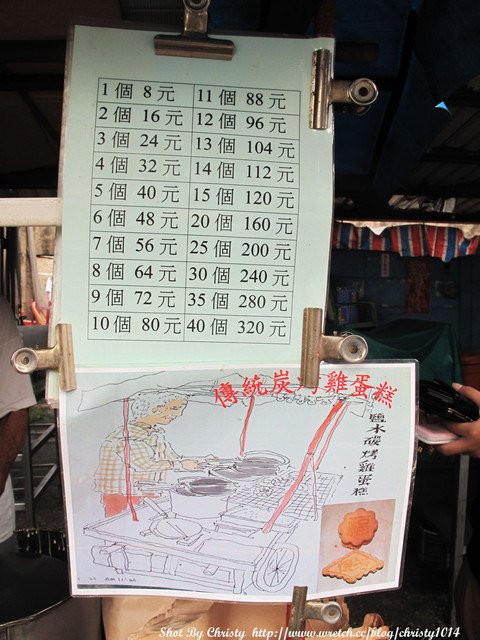 1 個 8 元 11 個 88 元
2 個 16 元 12 個 96 元
3 個 24 元 13 個 104 元
4 個 32 元 14 個 112 元
5 個 40 元 15 個 120 元
6 個 48 元 20 個 160 元
7 個 56 元 25 個 200 元
8 個 64 元 30 個 240 元
9 個 72 元 35 個 280 元
10 個 80 元 40 個 320 元
傳統炭 雞蛋糕
鹽水碳烤雞蛋糕
Shot By Christy http://www.wretch.cc/blog/christy1014